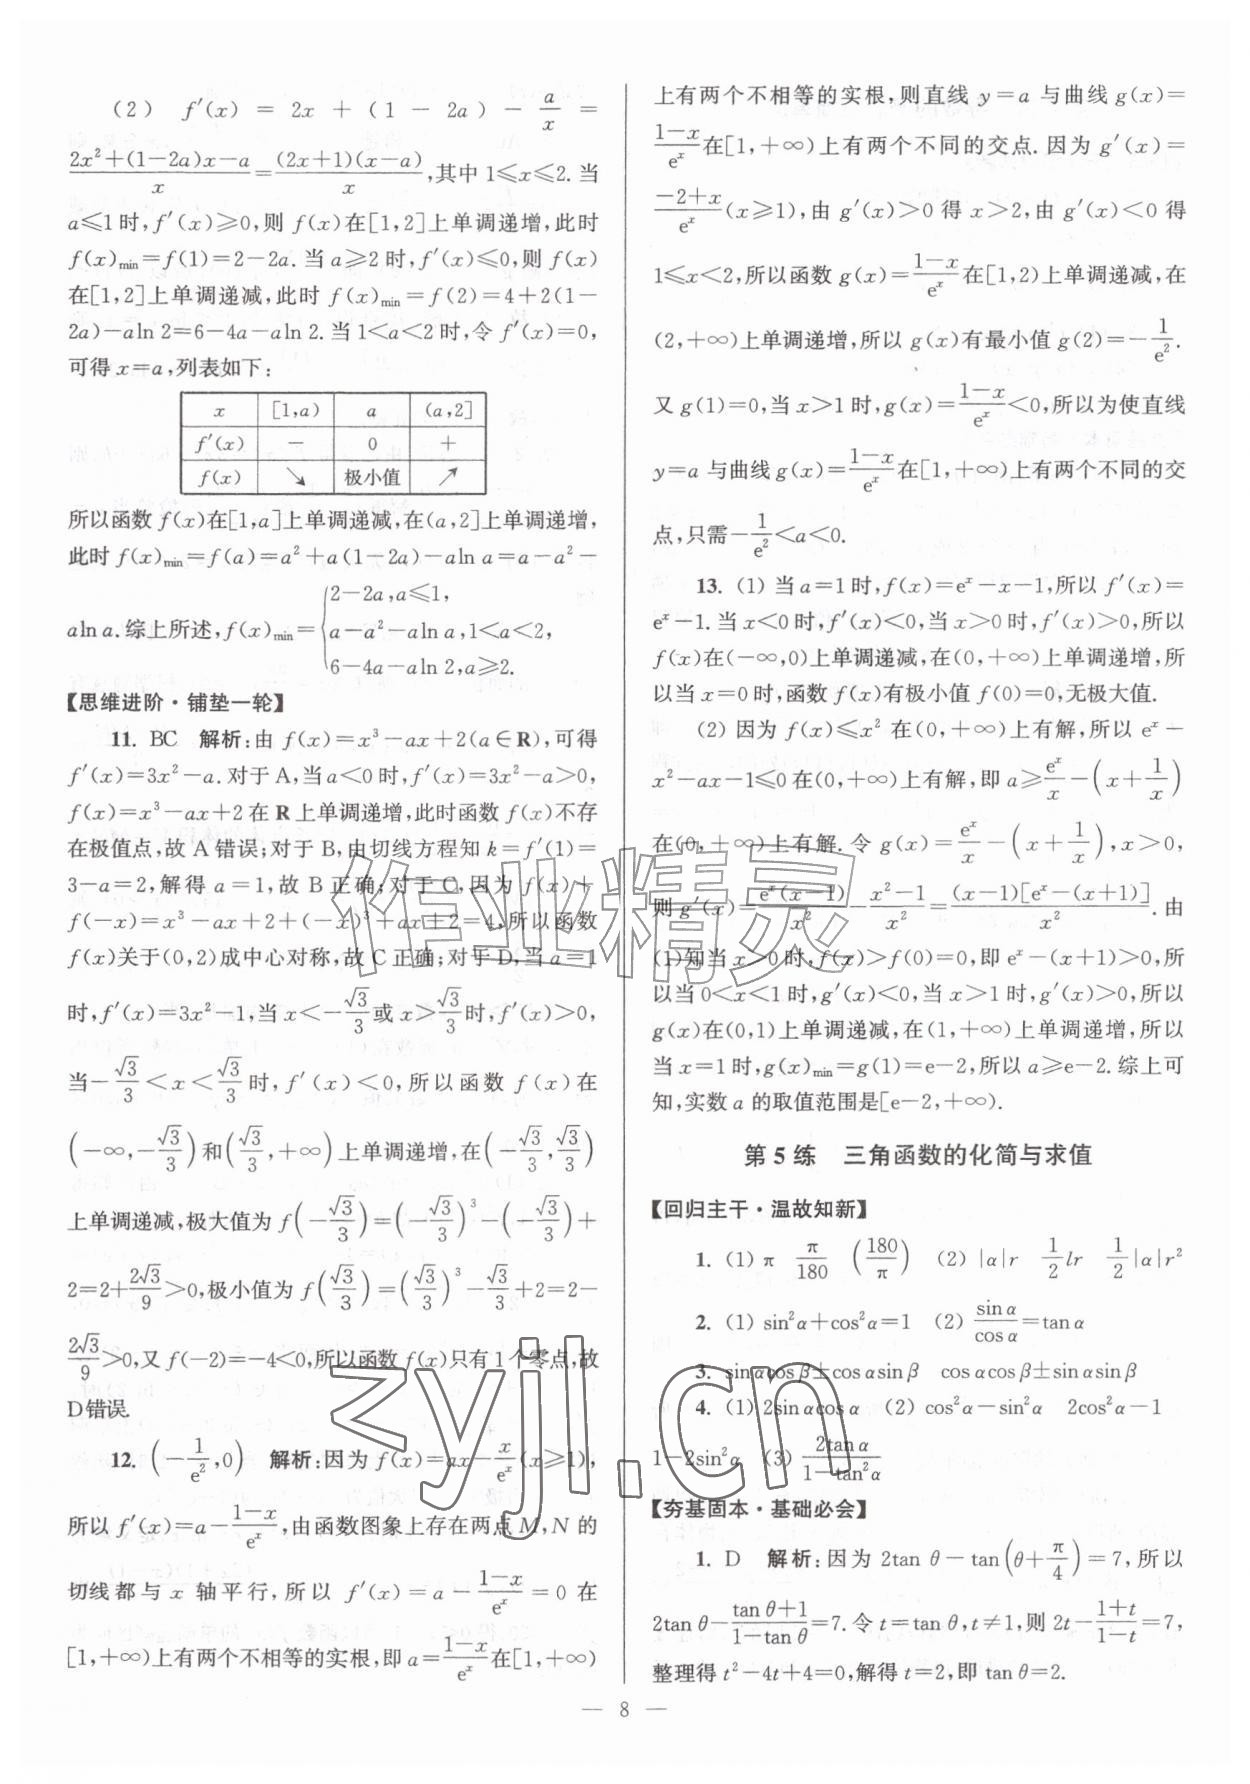 (2) f′(x) = 2x + (1 − 2a) − a/x =
(2x²+(1−2a)x−a)/x=((2x+1)(x−a))/x,其中 1≤x≤2. 当
a≤1 时,f′(x)≥0,则 f(x)在[1,2]上单调递增,此时
f(x)min=f(1)=2−2a. 当 a≥2 时,f′(x)≤0,则 f(x)
在[1,2]上单调递减,此时 f(x)min=f(2)=4+2(1−
2a)−aln 2=6−4a−aln 2. 当 1<a<2 时,令 f′(x)=0,
可得 x=a,列表如下:
x [1,a) a (a,2]
f′(x) − 0 +
f(x) ↘ 极小值 ↗
所以函数 f(x)在[1,a]上单调递减,在(a,2]上单调递增,
此时 f(x)min=f(a)=a²+a(1−2a)−aln a=a−a²−
aln a. 综上所述,f(x)min={2−2a,a≤1,
a−a²−aln a,1<a<2,
6−4a−aln 2,a≥2.
【思维进阶·铺垫一轮】
11. BC 解析:由 f(x)=x³−ax+2(a∈R),可得
f′(x)=3x²−a. 对于 A,当 a<0 时,f′(x)=3x²−a>0,
f(x)=x³−ax+2 在 R 上单调递增,此时函数 f(x)不存
在极值点,故 A 错误;对于 B,由切线方程知 k=f′(1)=
3−a=2,解得 a=1,故 B 正确;对于 C,因为 f(x)+
f(−x)=x³−ax+2+(−x)³+ax+2=4,所以函数
f(x)关于(0,2)成中心对称,故 C 正确;对于 D,当 a=1
时,f′(x)=3x²−1,当 x<−√3/3或 x>√3/3时,f′(x)>0,
当−√3/3<x<√3/3时,f′(x)<0,所以函数 f(x)在
(−∞,−√3/3)和(√3/3,+∞)上单调递增,在(−√3/3,√3/3)
上单调递减,极大值为 f(−√3/3)=(−√3/3)³−(−√3/3)+
2=2+2√3/9>0,极小值为 f(√3/3)=(√3/3)³−√3/3+2=2−
2√3/9>0,又 f(−2)=−4<0,所以函数 f(x)只有 1 个零点,故
D 错误.
12. (−1/e²,0) 解析:因为 f(x)=ax−x/eˣ(x≥1),
所以 f′(x)=a−(1−x)/eˣ,由函数图象上存在两点 M,N 的
切线都与 x 轴平行,所以 f′(x)=a−(1−x)/eˣ=0 在
[1,+∞)上有两个不相等的实根,即 a=(1−x)/eˣ在[1,+∞)
上有两个不相等的实根,则直线 y=a 与曲线 g(x)=
(1−x)/eˣ在[1,+∞)上有两个不同的交点. 因为 g′(x)=
(−2+x)/eˣ(x≥1),由 g′(x)>0 得 x>2,由 g′(x)<0 得
1≤x<2,所以函数 g(x)=(1−x)/eˣ在[1,2)上单调递减,在
(2,+∞)上单调递增,所以 g(x)有最小值 g(2)=−1/e².
又 g(1)=0,当 x>1 时,g(x)=(1−x)/eˣ<0,所以为使直线
y=a 与曲线 g(x)=(1−x)/eˣ在[1,+∞)上有两个不同的交
点,只需−1/e²<a<0.
13. (1) 当 a=1 时,f(x)=eˣ−x−1,所以 f′(x)=
eˣ−1. 当 x<0 时,f′(x)<0,当 x>0 时,f′(x)>0,所以
f(x)在(−∞,0)上单调递减,在(0,+∞)上单调递增,所
以当 x=0 时,函数 f(x)有极小值 f(0)=0,无极大值.
(2) 因为 f(x)≤x² 在(0,+∞)上有解,所以 eˣ−
x²−ax−1≤0 在(0,+∞)上有解,即 a≥eˣ/x−(x+1/x)
在(0,+∞)上有解. 令 g(x)=eˣ/x−(x+1/x),x>0,
则 g′(x)=eˣ(x−1)/x²−(x²−1)/x²=(x−1)[eˣ−(x+1)]/x². 由
(1)知当 x>0 时,f(x)>f(0)=0,即 eˣ−(x+1)>0,所
以当 0<x<1 时,g′(x)<0,当 x>1 时,g′(x)>0,所以
g(x)在(0,1)上单调递减,在(1,+∞)上单调递增,所以
当 x=1 时,g(x)min=g(1)=e−2,所以 a≥e−2. 综上可
知,实数 a 的取值范围是[e−2,+∞).
第 5 练 三角函数的化简与求值
【回归主干·温故知新】
1. (1) π π/180 (180/π) (2) |α|r 1/2 lr 1/2|α|r²
2. (1) sin²α+cos²α=1 (2) sin α/cos α=tan α
3. sin αcos β±cos αsin β cos αcos β±sin αsin β
4. (1) 2sin αcos α (2) cos²α−sin²α 2cos²α−1
1−2sin²α (3) 2tan α/(1−tan²α)
【夯基固本·基础必会】
1. D 解析:因为 2tan θ−tan(θ+π/4)=7,所以
2tan θ−(tan θ+1)/(1−tan θ)=7. 令 t=tan θ,t≠1,则 2t−(1+t)/(1−t)=7,
整理得 t²−4t+4=0,解得 t=2,即 tan θ=2.
— 8 —
作业精灵
zyjl.cn